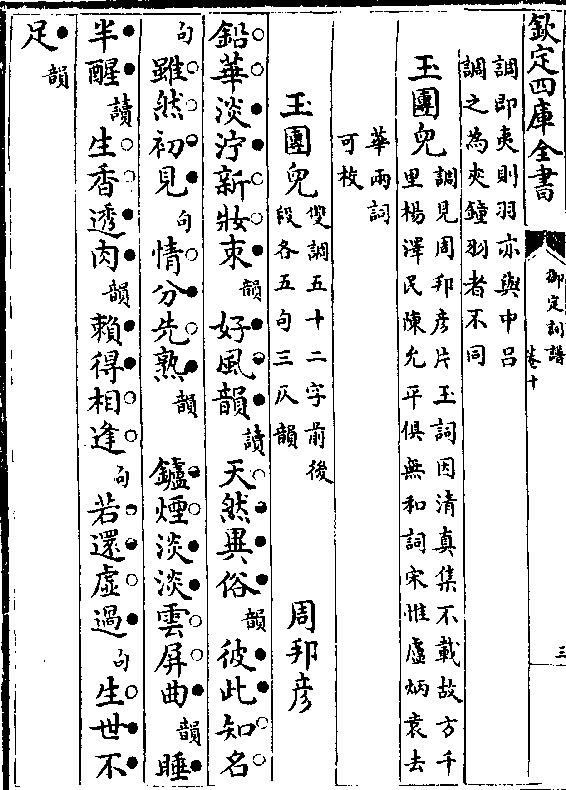 欽定四庫全書
御定詞譜
卷十
三
調即夷則羽亦與中呂
調之為夾鐘羽者不同
玉團兒
調見周邦彥片玉詞因清真集不載故方千
里楊澤民陳允平俱無和詞宋惟盧炳袁去
華兩詞
可校
玉團兒
雙調五十二字前後
段各五句三仄韻
周邦彥
鉛華淡泞新妝束韻好風韻讀天然異俗韻彼此知名
句雖然初見句情分先熟韻鑪煙淡淡雲屏曲韻睡
半醒讀生香透肉韻賴得相逢句若還虛過句生世不
足韻